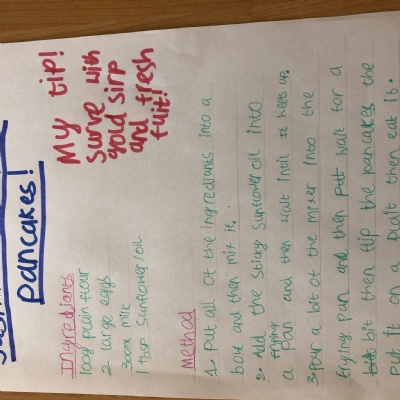 pancakes!
My tip!
Surve with
gold sirp
and fresh
fuit!
Ingrediants
100g plain flour
2 large eggs
300ml milk
1 tbsp Sunflower/oil
Method
1. Put all of the ingrediants into a
bow and then mix it.
2. Add the sticky Sunflower oil into
a frying pan and then wait intil it heets up.
3. pour a bit of the mixer into the
frying pan and then put wait for a
bit then flip the pancakes the
put it on a then eat it.